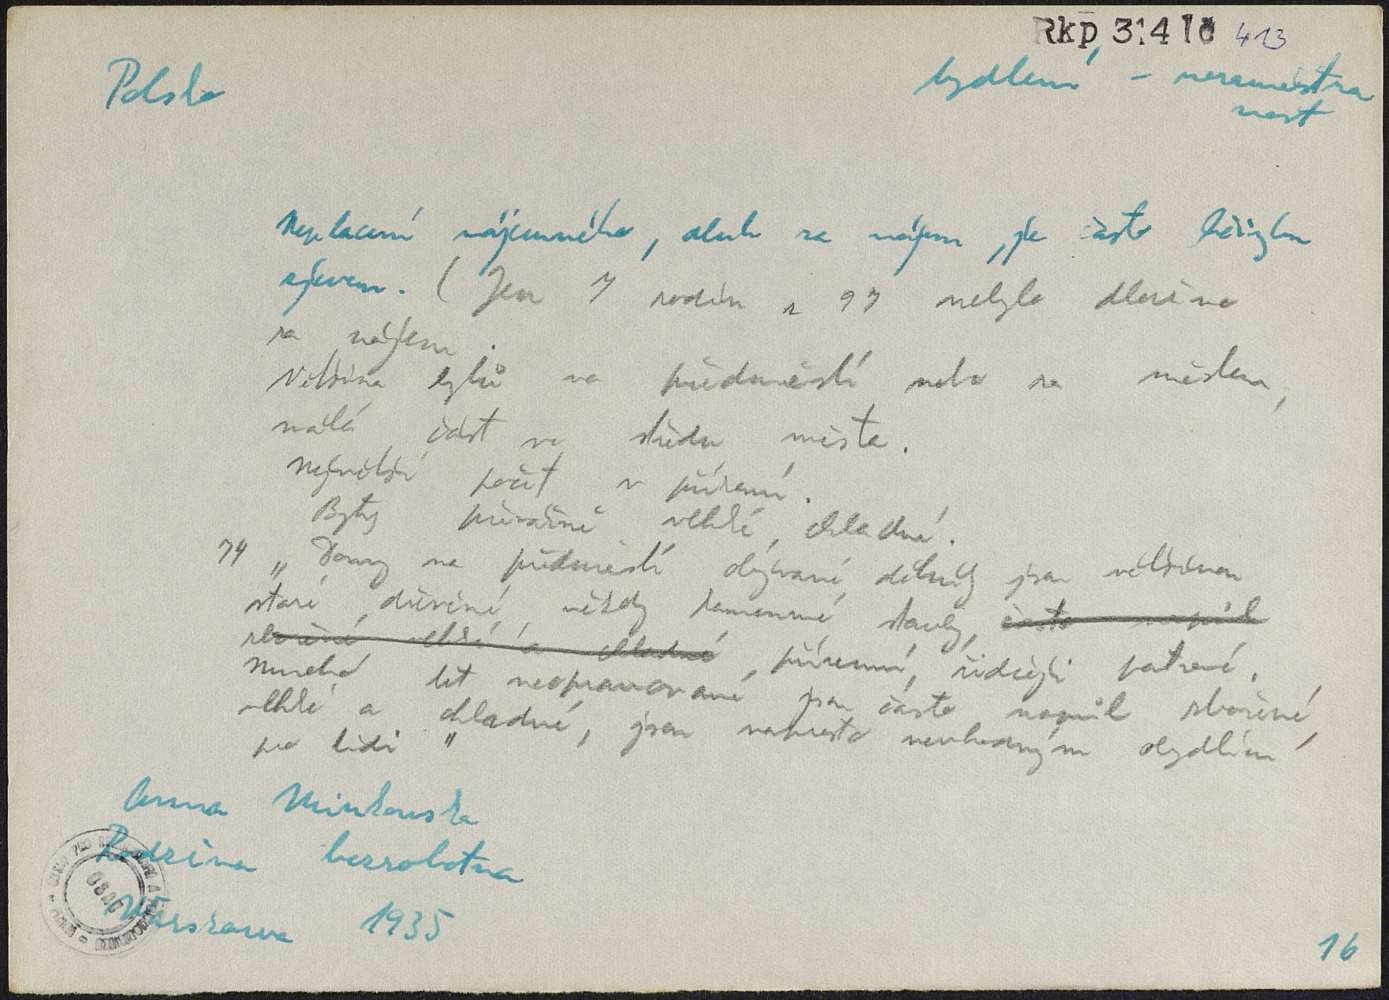 Rkp 3:410 413
Polsko
bydlení – nezaměstna
nost
Neplacení nájemného, dluh za nájem je často běžným
zjevem. (Jen 7 rodin z 97 nebylo dlužno
za nájem.
Většina bytů na předměstí nebo za městem,
malá část ve středu města.
Největší počet v přízemí.
Byty převážně vlhké, chladné.
74 „Domy na předměstí obývané dělníky jsou většinou
staré dřevěné, někdy kamenné stavby, často napůl
zbořené vlhké a chladné, přízemní, řidčeji patrové.
Mnoho let neopravované jsou často napůl zbořené
vlhké a chladné, jsou naprosto nevhodným obydlím
pro lidi"
Anna Minkowska
Rodzina bezrobotna
Warszawa 1935
16